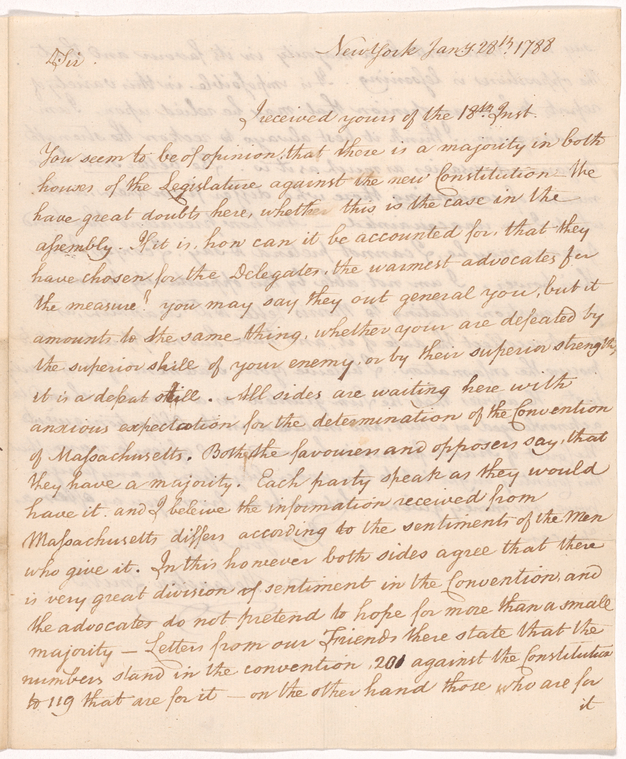 New York Jany. 28th. 1788
Dr Sir.
I received yours of the 18th Inst.
You seem to be of opinion, that there is a majority in both
houses of the Legislature against the new Constitution. We
have great doubts here, whether this is the case in the
assembly. If it is, how can it be accounted for, that they
have chosen for the Delegates, the warmest advocates for
the measure? you may say they out general you, but it
amounts to the same thing, whether your are defeated by
the superior skill of your enemy or by their superior strength,
it is a defeat still. All sides are waiting here with
anxious expectation for the determination of the Convention
of Massachusetts. Both the favourers and opposers say, that
they have a majority. Each party speak as they would
have it. and I beleive the information received from
Massachusetts differs according to the sentiments of the Men
who give it. In this however both sides agree that there
is very great division of sentiment in the Convention, and
the advocates do not pretend to hope for more than a small
majority — Letters from our Friends there state that the
numbers stand in the convention, 201 against the Constitution
to 119 that are for it — on the other hand those who are for
it